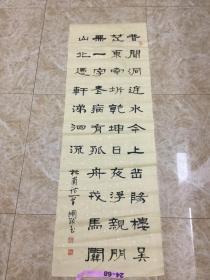 昔聞洞庭水今上岳陽樓吳
楚東南坼乾坤日夜浮親朋
無一字老病有孤舟戎馬關
山北憑軒涕泗流
杜甫詩一首
24-68